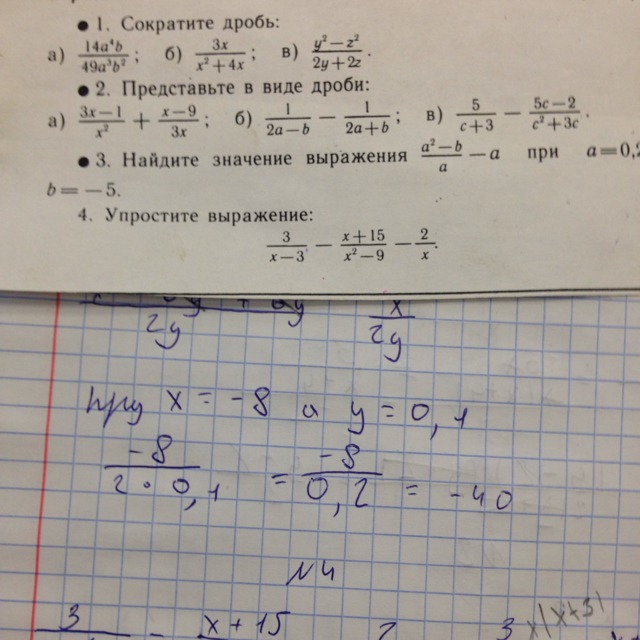 ● 1. Сократите дробь:
а) 14a⁴b/49a³b²; б) 3x/(x²+4x); в) (y²−z²)/(2y+2z).
● 2. Представьте в виде дроби:
а) (3x−1)/x² + (x−9)/3x; б) 1/(2a−b) − 1/(2a+b); в) 5/(c+3) − (5c−2)/(c²+3c).
● 3. Найдите значение выражения (a²−b)/a − a при a=0,2
b=−5.
4. Упростите выражение:
3/(x−3) − (x+15)/(x²−9) − 2/x.
2y x/2y
при x = -8 а y = 0,1
-8/(2·0,1) = -8/0,2 = -40
N4
3 − x+15 2 3 x(x+3)